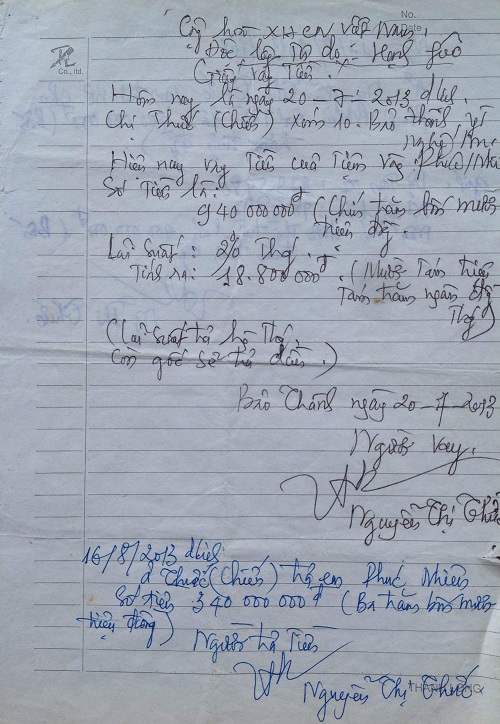 No.
Date
Co., ltd.
Cộng hòa XHCN Việt Nam.
Độc lập Tự do - Hạnh Phúc
Giấy Vay Tiền.
Hôm nay là ngày 20-7-2013 dlịch.
Chị Thuế (Chiến) Xóm 10. Bảo Thành.
Nghệ An
Hiện nay vay Tiền của Tiệm Vàng Phúc
Số Tiền là:
940 000 000đ (Chín trăm bốn mươi
triệu đồng.
Lãi suất: 2% Thg.
Tính ra: 18.800 000đ. (Mười Tám triệu
Tám trăm ngàn đồng
Thg)
(Lãi suất trả hg Thg
Còn gốc sẽ trả dần.)
Bảo Thành ngày 20-7-2013
Người vay.
Nguyễn Thị
16/8/2013 dlịch
(Chiến) trả em Phúc Nhiên
Số tiền 340 000 000đ (Ba trăm bốn mươi
triệu đồng)
Người trả Tiền
Nguyễn Thị